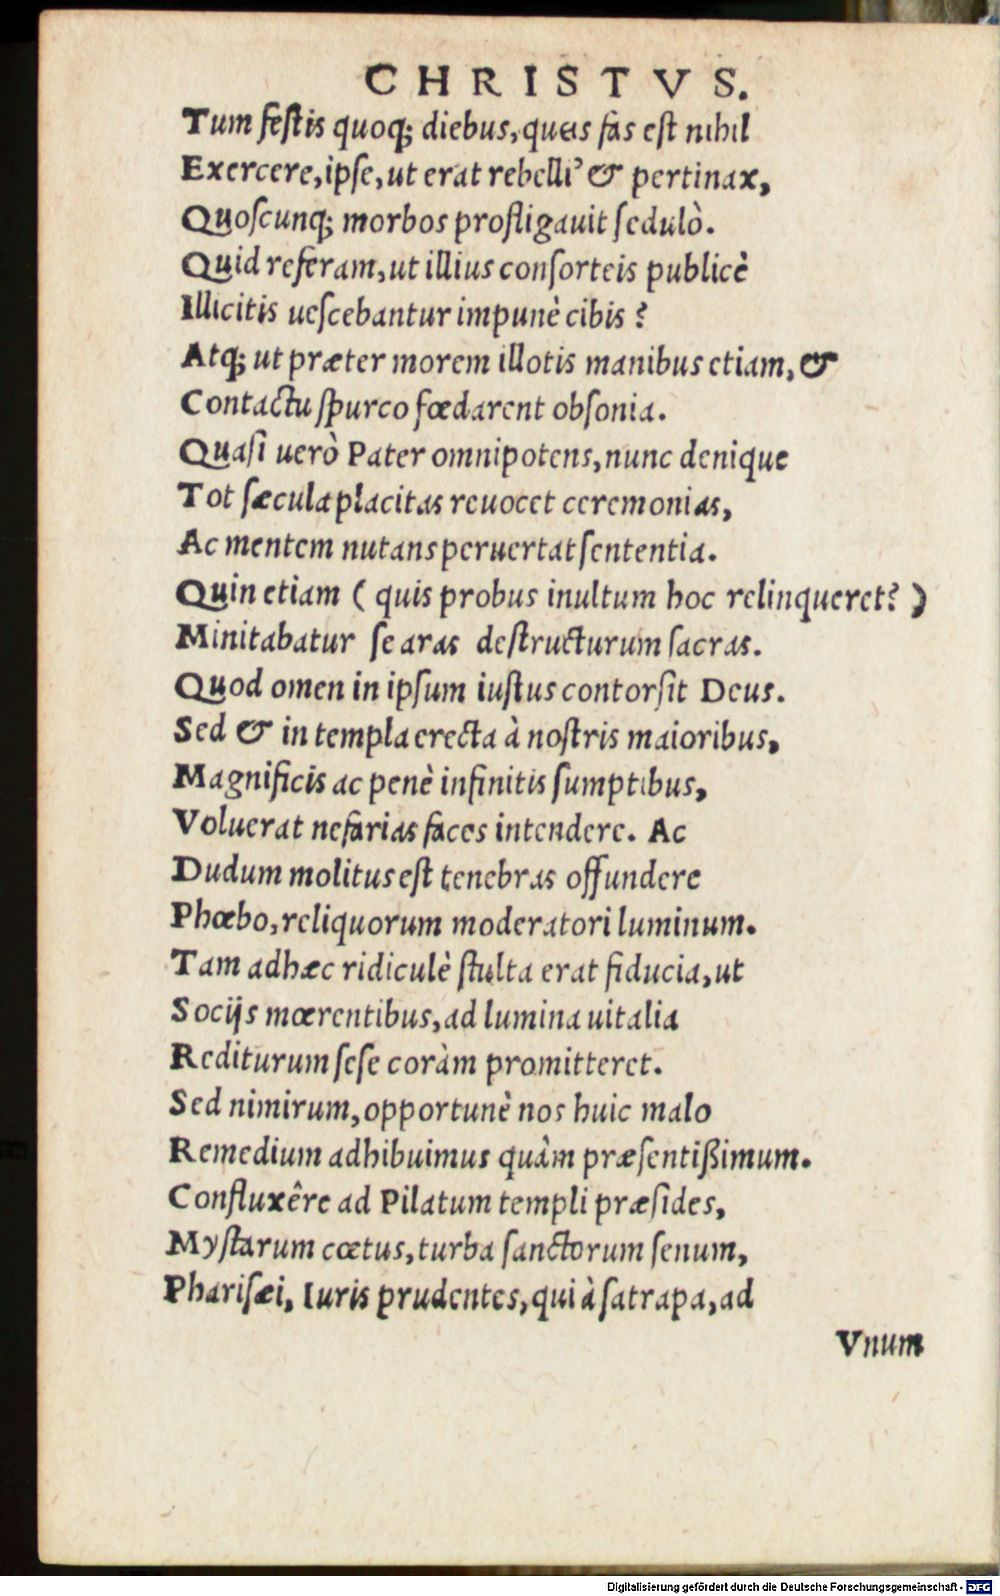 CHRISTVS.
Tum feſtis quoq; diebus, queis fas eſt nihil
Exercere, ipſe, ut erat rebelliꝰ & pertinax,
Quoſcunq; morbos profligauit ſedulò.
Quid referam, ut illius conſorteis publicè
Illicitis ueſcebantur impunè cibis?
Atq; ut præter morem illotis manibus etiam, &
Contactu ſpurco fœdarent obſonia.
Quaſi uerò Pater omnipotens, nunc denique
Tot ſæcula placitas reuocet ceremonias,
Ac mentem nutans peruertat ſententia.
Quin etiam ( quis probus inultum hoc relinqueret? )
Minitabatur ſe aras deſtructurum ſacras.
Quod omen in ipſum iuſtus contorſit Deus.
Sed & in templa erecta à noſtris maioribus,
Magnificis ac penè infinitis ſumptibus,
Voluerat nefarias faces intendere. Ac
Dudum molitus eſt tenebras offundere
Phœbo, reliquorum moderatori luminum.
Tam adhæc ridiculè ſtulta erat fiducia, ut
Socijs mœrentibus, ad lumina uitalia
Rediturum ſeſe coràm promitteret.
Sed nimirum, opportunè nos huic malo
Remedium adhibuimus quàm præſentißimum.
Confluxêre ad Pilatum templi præſides,
Myſtarum cœtus, turba ſanctorum ſenum,
Phariſæi, Iuris prudentes, qui à ſatrapa, ad
Vnum
Digitalisierung gefördert durch die Deutsche Forschungsgemeinschaft - DFG